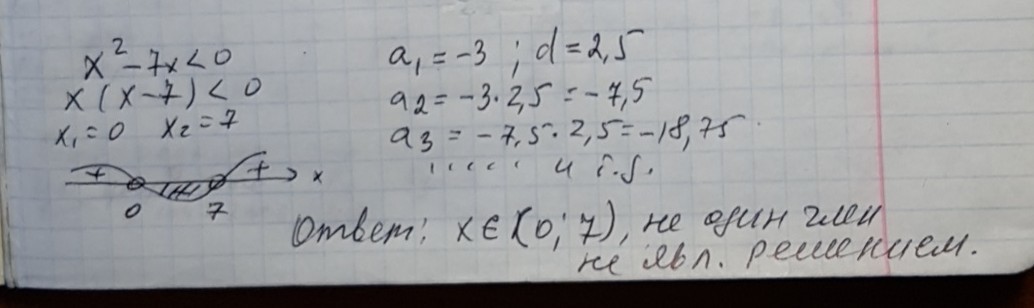 x² - 7x < 0
x (x - 7) < 0
x₁ = 0 x₂ = 7
+ + x
0 7
a₁ = -3 ; d = 2,5
a₂ = -3 · 2,5 = -7,5
a₃ = -7,5 · 2,5 = -18,75
..... и т.д.
Ответ: x ∈ (0; 7), не один член
не явл. решением.